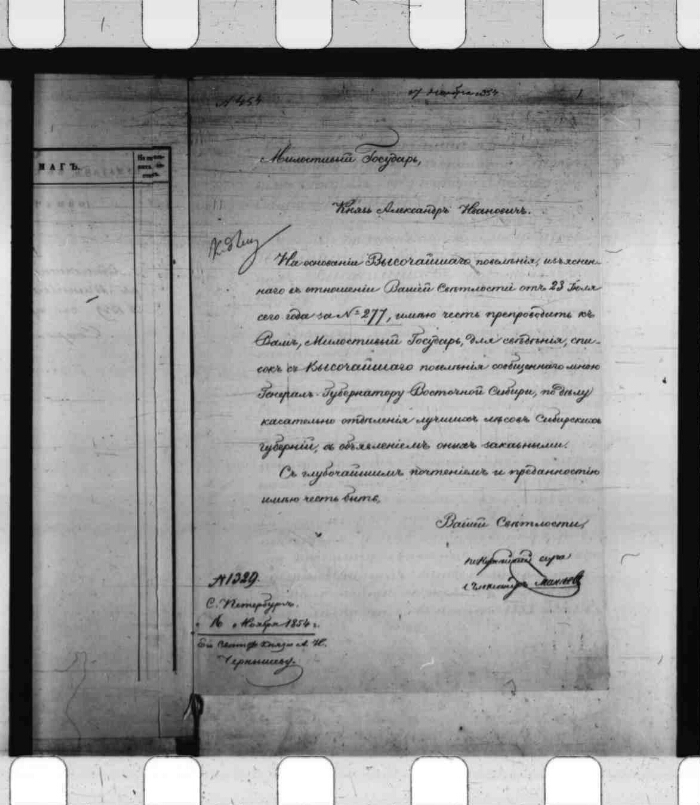 МАГЪ.
№ 454
17 Ноября 1854
1
Милостивый Государь,
Князь Александръ Ивановичъ.
На основаніи Высочайшаго повелѣнія, изъяснен-
наго въ отношеніи Вашей Свѣтлости отъ 23 Іюля
сего года за № 277, имѣю честь препроводить къ
Вамъ, Милостивый Государь, для свѣдѣнія, спи-
сокъ съ Высочайшаго повелѣнія сообщеннаго мною
Генералъ-Губернатору Восточной Сибири, по дѣлу
касательно отдѣленія лучшихъ лѣсовъ Сибирскихъ
губерній, съ объявленіемъ оныхъ заказными.
Съ глубочайшимъ почтеніемъ и преданностію
имѣю честь быть,
Вашей Свѣтлости,
покорнѣйшій слуга
№ 1329.
С. Петербургъ.
16 Ноября 1854 г.
Его Свѣтл. Князю А. И.
Чернышеву.